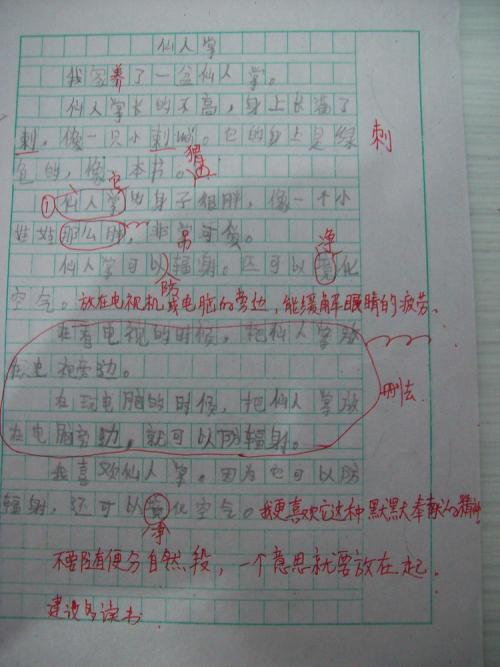 仙人掌
我家养了一盆仙人掌。
仙人掌长的不高，身上长满了
刺，像一只小刺猬。它的身上是绿
刺
猬
色的，像一本书。
它
①仙人掌的身子很胖，像一个小
姓姓那么胖，非常可爱。
仙人掌可以辐射。还可以 化
防
净
空气。放在电视机或电脑的旁边，能缓解眼睛的疲劳。
在看电视的时候，把仙人掌放
在电视旁边。
删去
在玩电脑的时候，把仙人掌放
在电脑旁边，就可以防辐射。
我喜欢仙人掌。因为它可以防
辐射，还可以 化空气。我更喜欢它这种默默奉献的精神
净
不要随便分自然段，一个意思就要放在一起.
建议多读书